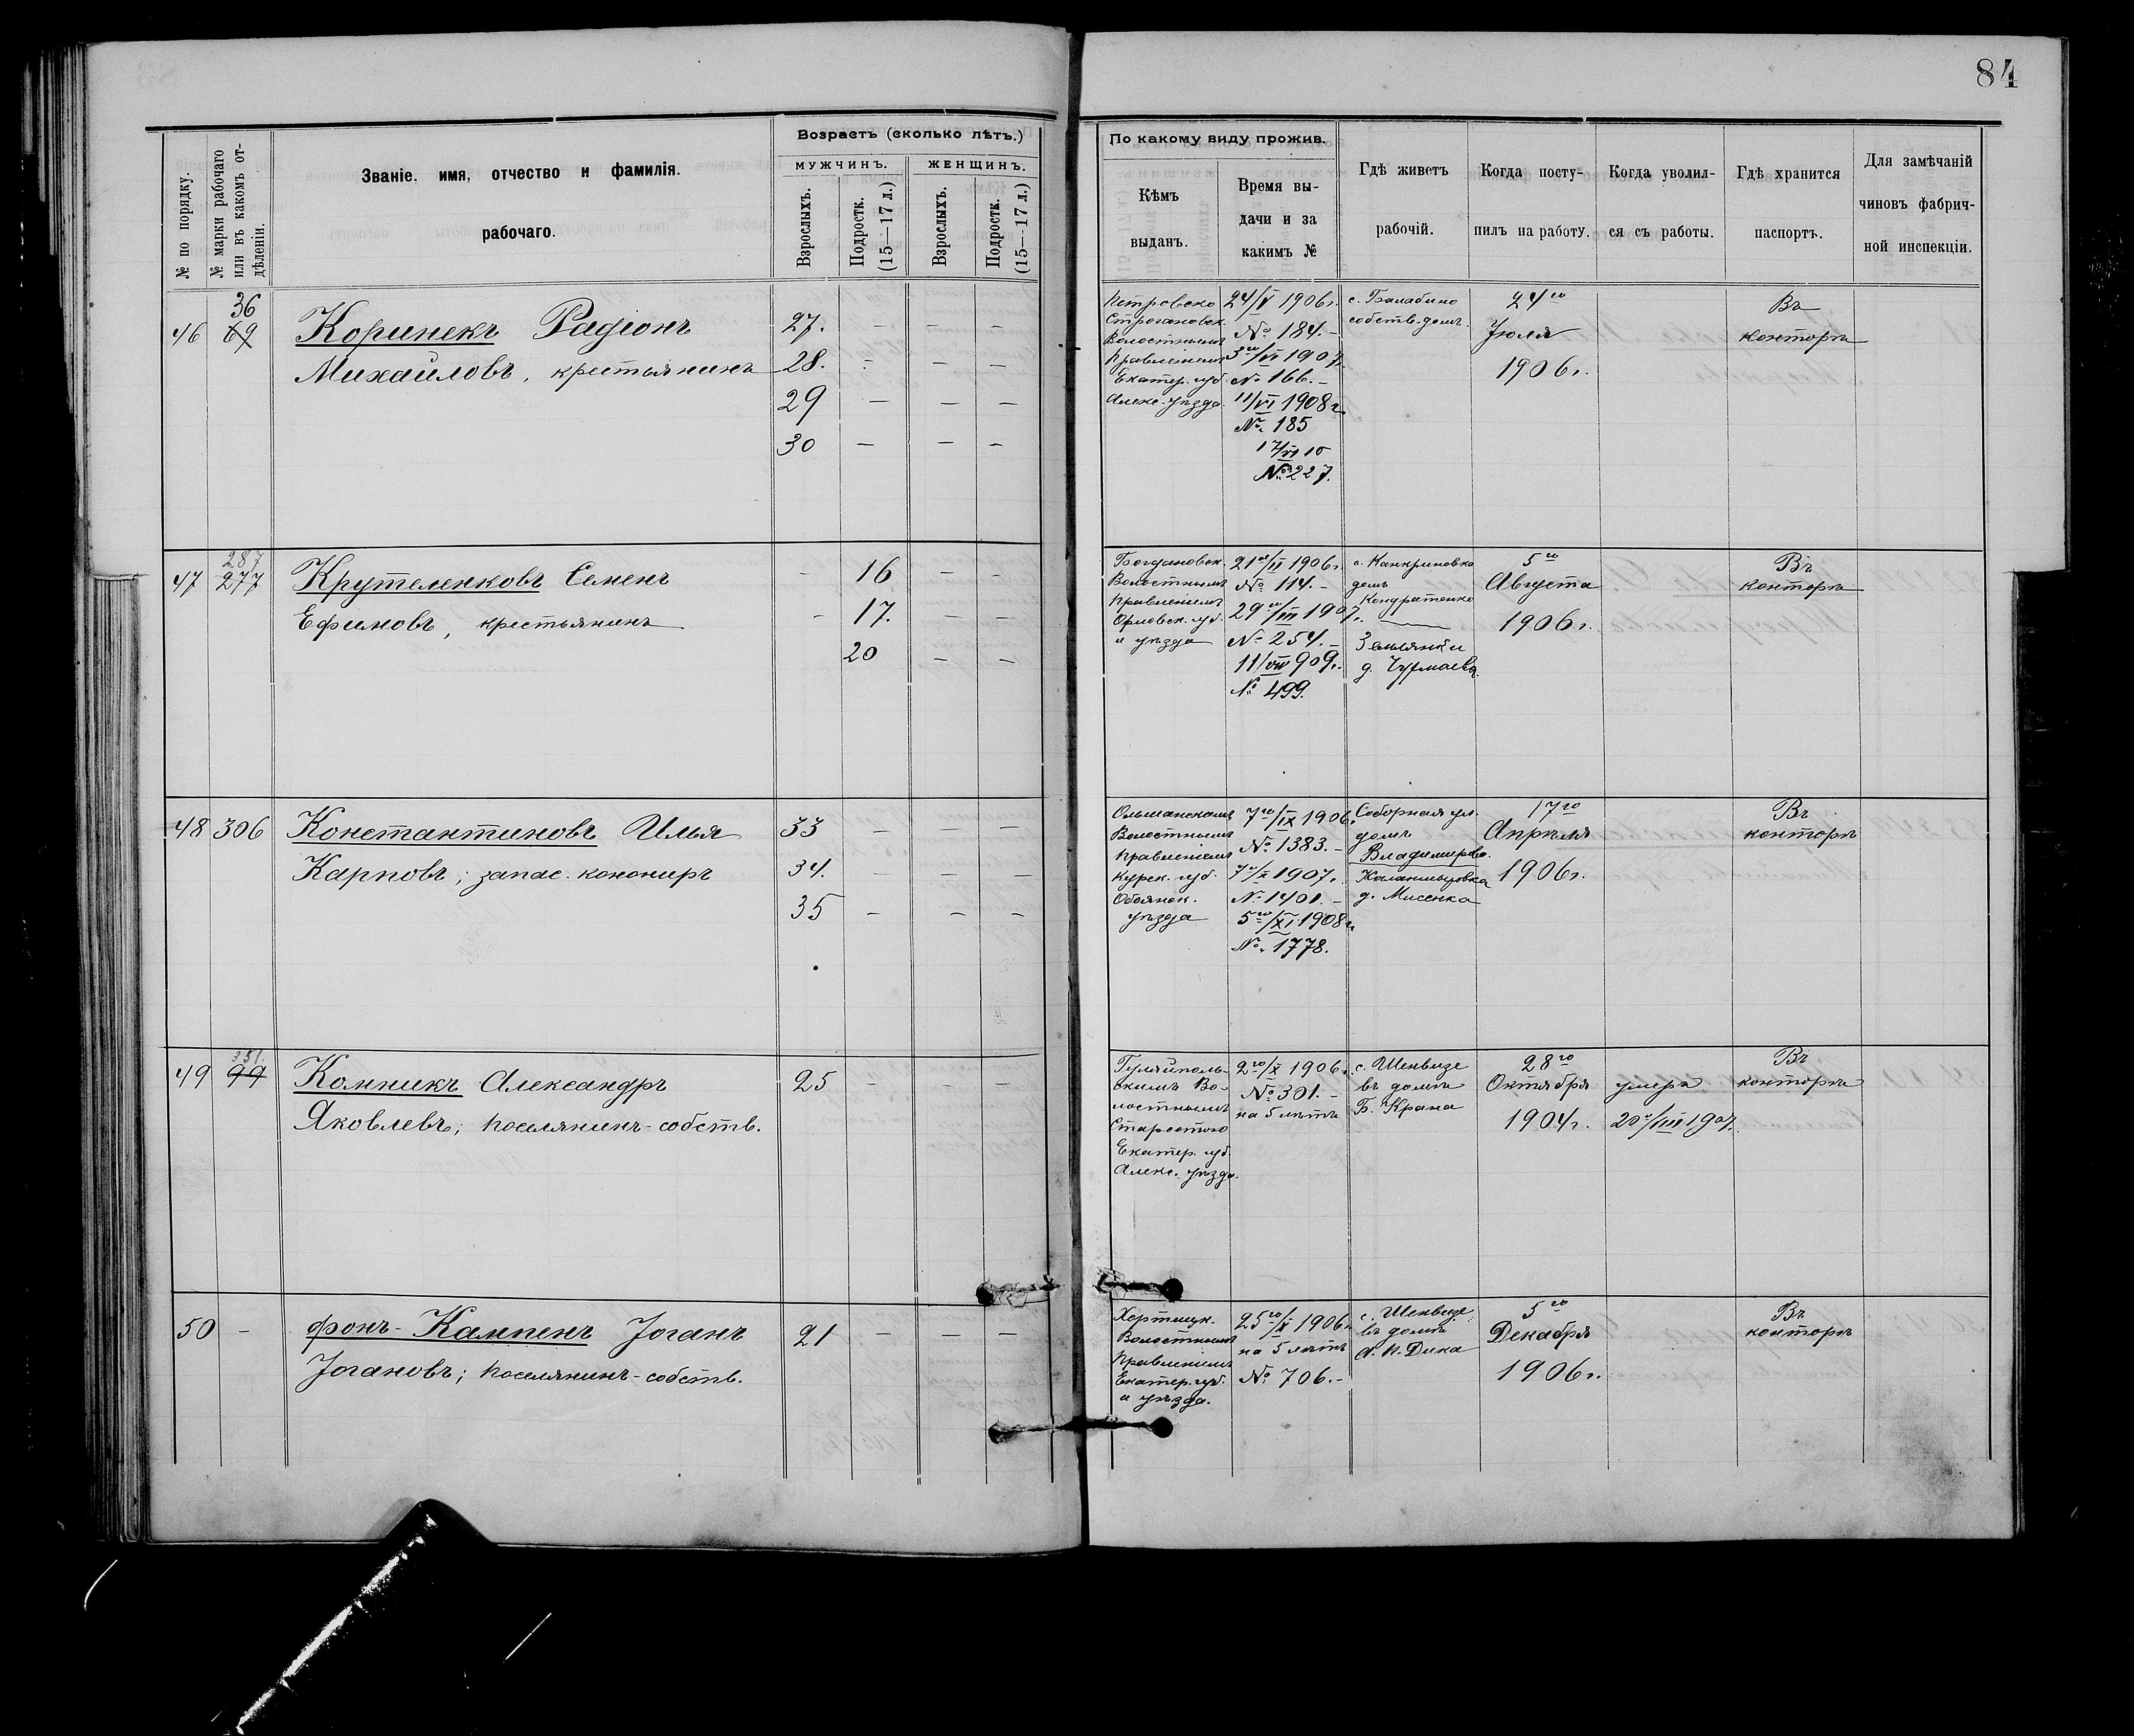 84
№ по порядку.
№ марки рабочаго
или въ какомъ от-
дѣленіи.
Званіе, имя, отчество и фамилія.
рабочаго.
Возрастъ (сколько лѣтъ.)
МУЖЧИНЪ.
ЖЕНЩИНЪ.
Взрослыхъ.
Подростк.
(15—17 л.)
Взрослыхъ.
Подростк.
(15—17 л.)
По какому виду прожив.
Кѣмъ
выданъ.
Время вы-
дачи и за
какимъ №
Гдѣ живетъ
рабочій.
Когда посту-
пилъ на работу.
Когда уволил-
ся съ работы.
Гдѣ хранится
паспортъ.
Для замѣчаній
чиновъ фабрич-
ной инспекціи.
46
36
69
Коринекъ Радіонъ
Михайловъ, крестьянинъ
27. — — —
28. — — —
29 — — —
30 — — —
Петровско
Строгановск.
Волостнымъ
Правленіемъ
Екатер. губ.
Алекс. уѣзда.
24/V 1906г.
№ 184.—
3го/VI 1907г.
№ 166.—
11/VI 1908г.
№ 185
17/VI 10
№ 227.
с. Балабино
собств. домъ.
24го
Іюля
1906г.
Въ
конторѣ
47
287
277
Крутеленковъ Семенъ
Ефимовъ, крестьянинъ
— 16 — —
— 17. — —
20 — —
Богдановск.
Волостнымъ
Правленіемъ
Орловск. губ.
и уѣзда
21го/II 1906г.
№ 114.—
29го/III 1907г.
№ 254.—
11/VIII 909г.
№ 499.
с. Канкриновка
домъ
Кондратенко
Землянки
д. Чурмаева.
5го
Августа
1906г.
Въ
конторѣ
48 306
Константиновъ Илья
Карповъ; запас. канониръ
33 — — —
34. — — —
35 — — —
Ольшанскимъ
Волостнымъ
Правленіемъ
Курск. губ.
Обоянск.
уѣзда
7го/IX 1906г.
№ 1383.—
7го/X 1907г.
№ 1401.—
5го/XI 1908г.
№ 1778.
Соборная ул.
домъ
Владимирова.
д. Мисенка
17го
Апрѣля
1906г.
Въ
конторѣ
49
351.
99
Комникъ Александръ
Яковлевъ; поселянинъ-собств.
25 — — —
Гуляйполь-
скимъ Во-
лостнымъ
Старостою
Екатер. губ.
Алекс. уѣзда.
2го/X 1906г.
№ 301.—
на 5 лѣтъ
с. Шенвизе
въ домѣ
Б. Крана
28го
Октября
1904г.
умеръ
20го/III 1907.
Въ
конторѣ
50 —
фонъ-Кампенъ Іоганъ
Іогановъ; поселянинъ-собств.
21 — — —
Хортицк.
Волостнымъ
Правленіемъ
Екатер. губ.
и уѣзда.
25го/X 1906г.
на 5 лѣтъ
№ 706.—
с. Шенвизе
въ домѣ
А. П. Дика
5го
Декабря
1906г.
Въ
конторѣ